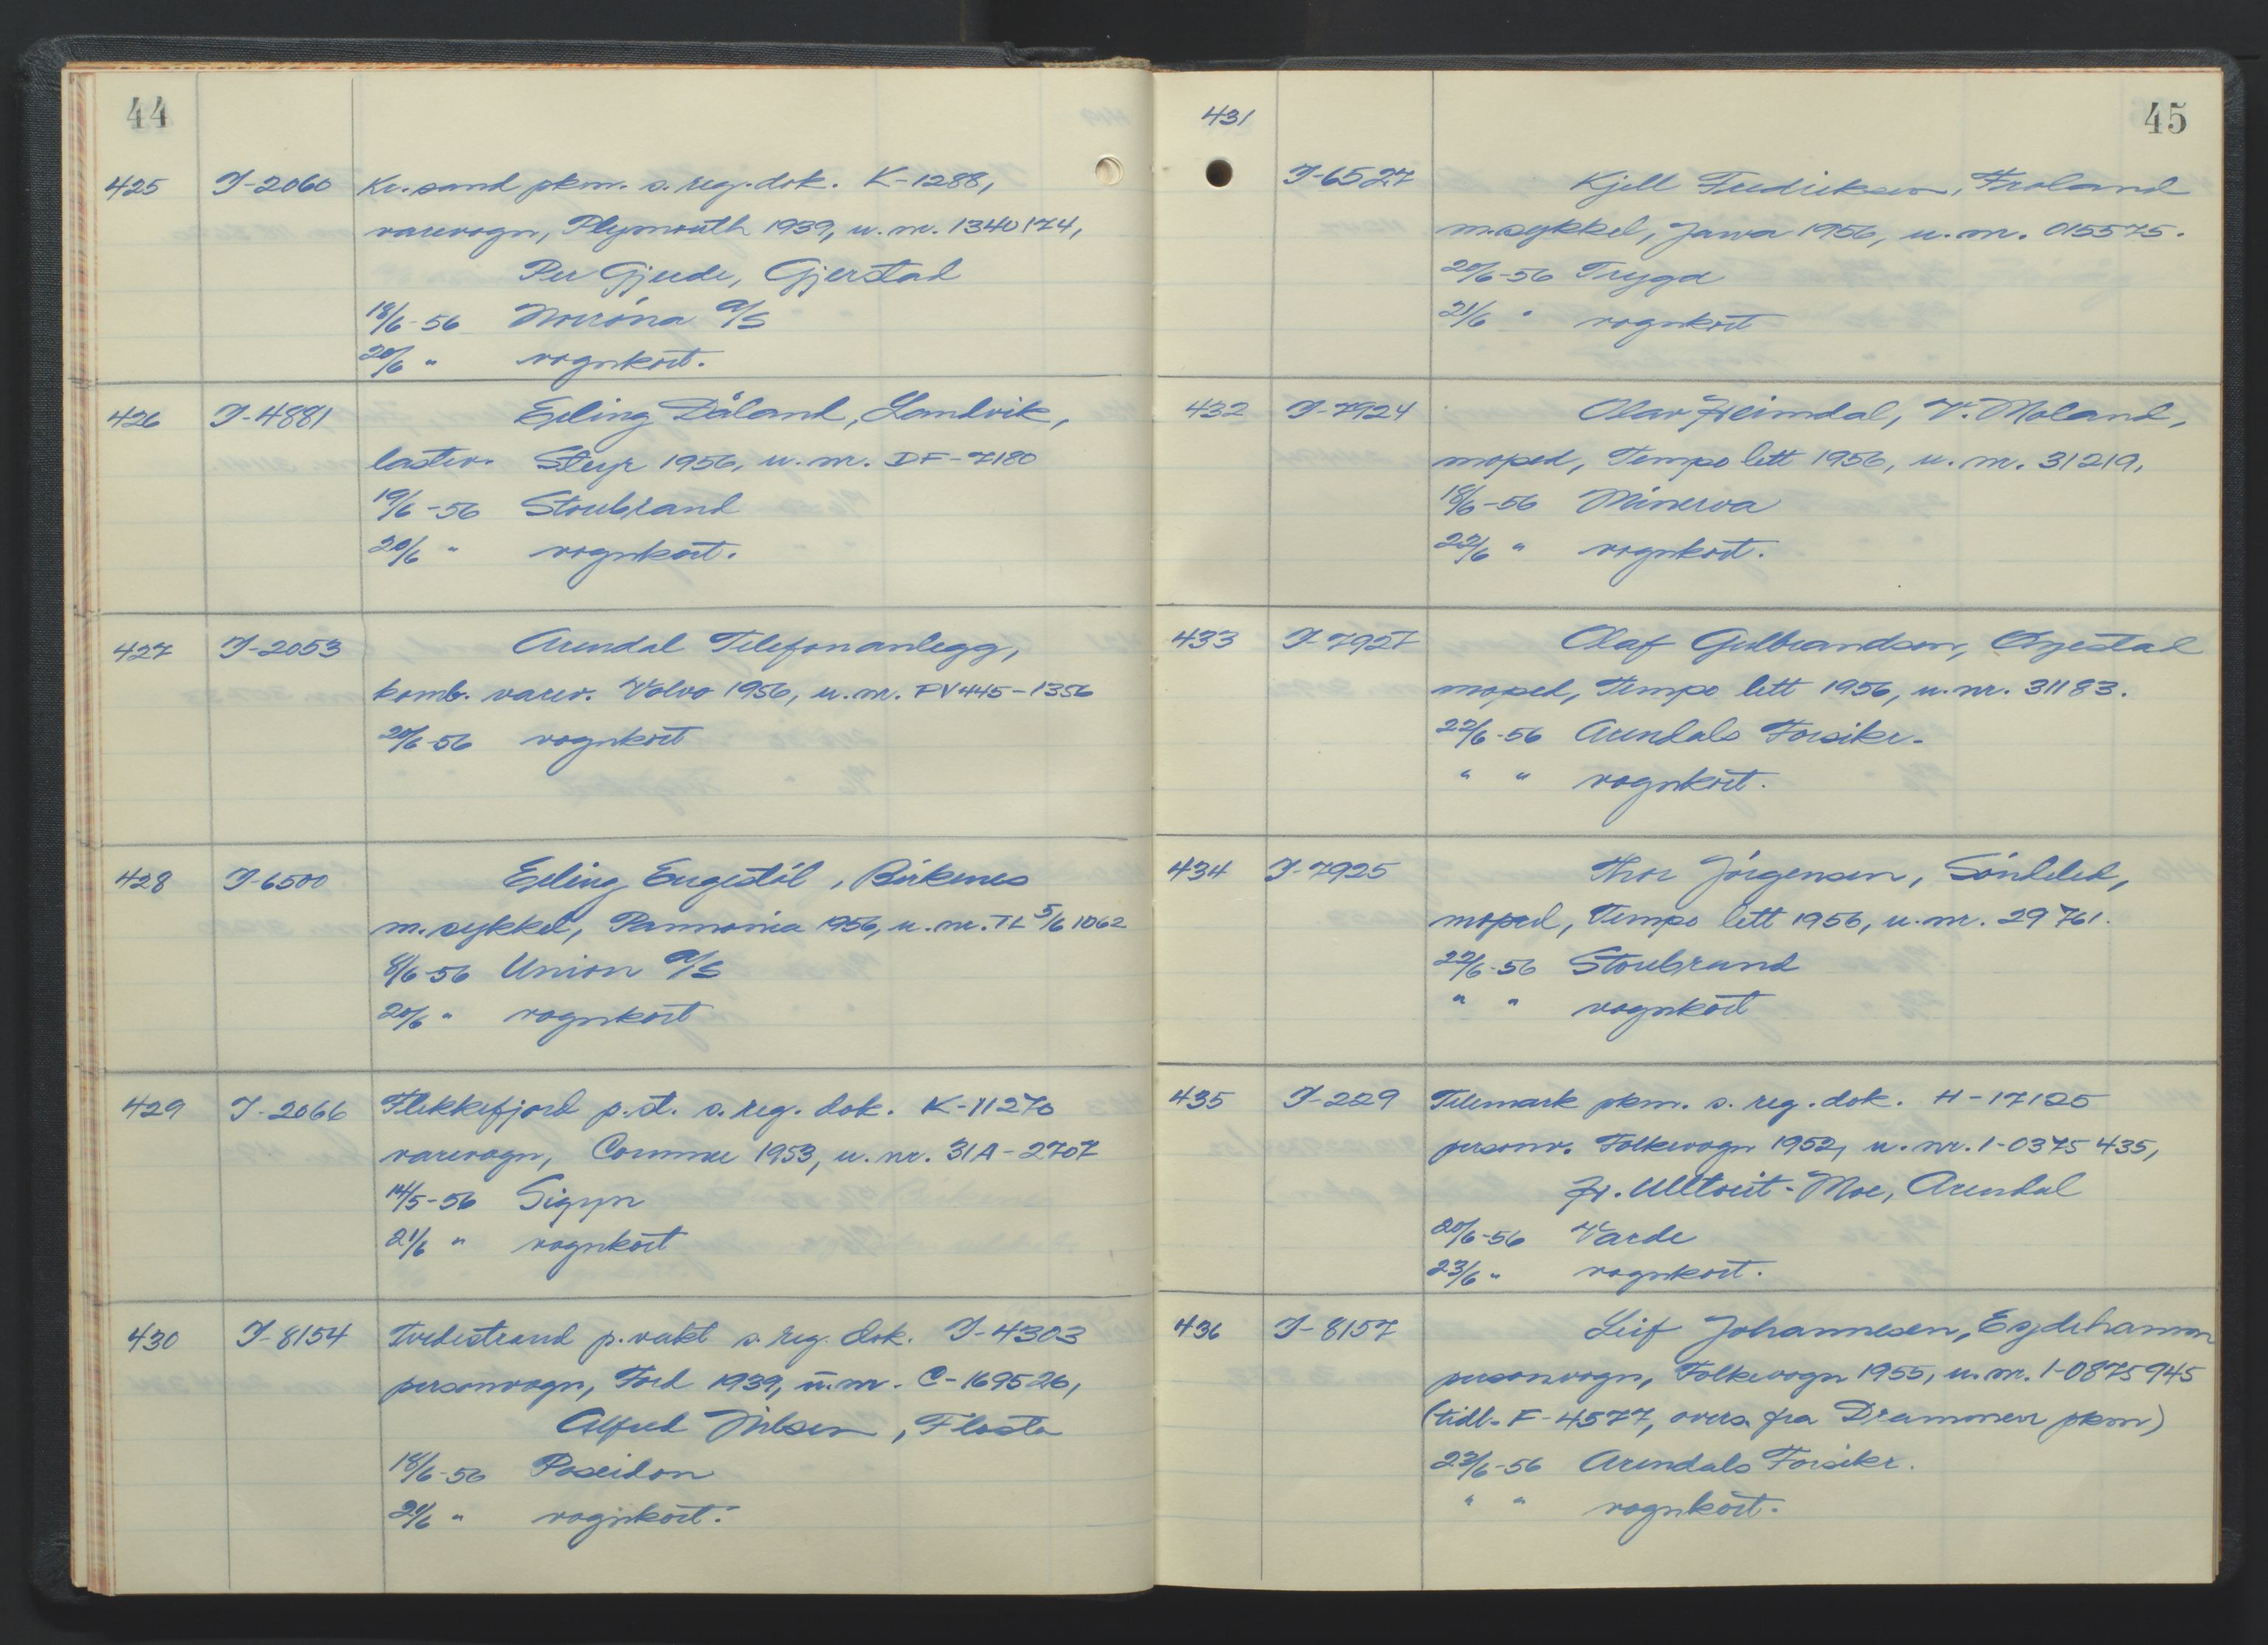 44
425 I-2060 Kr.sand pkm. s. reg. dok. K-1288,
varevogn, Plymouth 1939, u. nr. 1340174,
Per Gjerde, Gjerstad
18/6-56 Norröna A/S
20/6 " vognkort.
426 I-4881 Erling Dåland, Landvik,
lastev. Steyr 1956, u. nr. DF-7180
19/6-56 Storebrand
20/6 " vognkort.
427 I-2053 Arendal Telefonanlegg,
komb. varev. Volvo 1956, u. nr. PV445-1356
20/6-56 vognkort
428 I-6500 Erling Engestöl, Birkenes
m.sykkel, Pannonia 1956, u. nr. TL 5/6 1062
8/6-56 Union A/S
20/6 " vognkort
429 I-2066 Flekkefjord p.st. s. reg. dok. K-11270
varevogn, Commer 1953, u. nr. 31A-2707
14/5-56 Sigyn
21/6 " vognkort
430 I-8154 Tvedestrand p.vakt s. reg. dok. I-4303
personvogn, Ford 1939, u. nr. C-169526,
Alfred Nilsen, Flosta
18/6-56 Poseidon
21/6 " vognkort.
45
431 I-6527 Kjell Fredriksen, Froland
m.sykkel, Jawa 1956, u. nr. 015575.
20/6-56 Trygd
21/6 " vognkort
432 I-7924 Olav Heimdal, V. Moland,
moped, Tempo lett 1956, u. nr. 31219,
18/6-56 Minerva
22/6 " vognkort.
433 I-7927 Olaf Gulbrandsen, Öyestad
moped, Tempo lett 1956, u. nr. 31183.
22/6-56 Arendals Forsikr.
" " vognkort.
434 I-7925 Thor Jörgensen, Söndeled,
moped, Tempo lett 1956, u. nr. 29761.
22/6-56 Storebrand
" " vognkort
435 I-229 Telemark pkm. s. reg. dok. H-17125
personv. Folkevogn 1952, u. nr. 1-0375435,
Fr. Ulltveit-Moe, Arendal
20/6-56 Varde
23/6 " vognkort.
436 I-8157 Leif Johannesen, Eydehamn
personvogn, Folkevogn 1955, u. nr. 1-0875945
(tidl. F-4577, overs. fra Drammen pkm)
23/6-56 Arendals Forsikr.
" " vognkort.